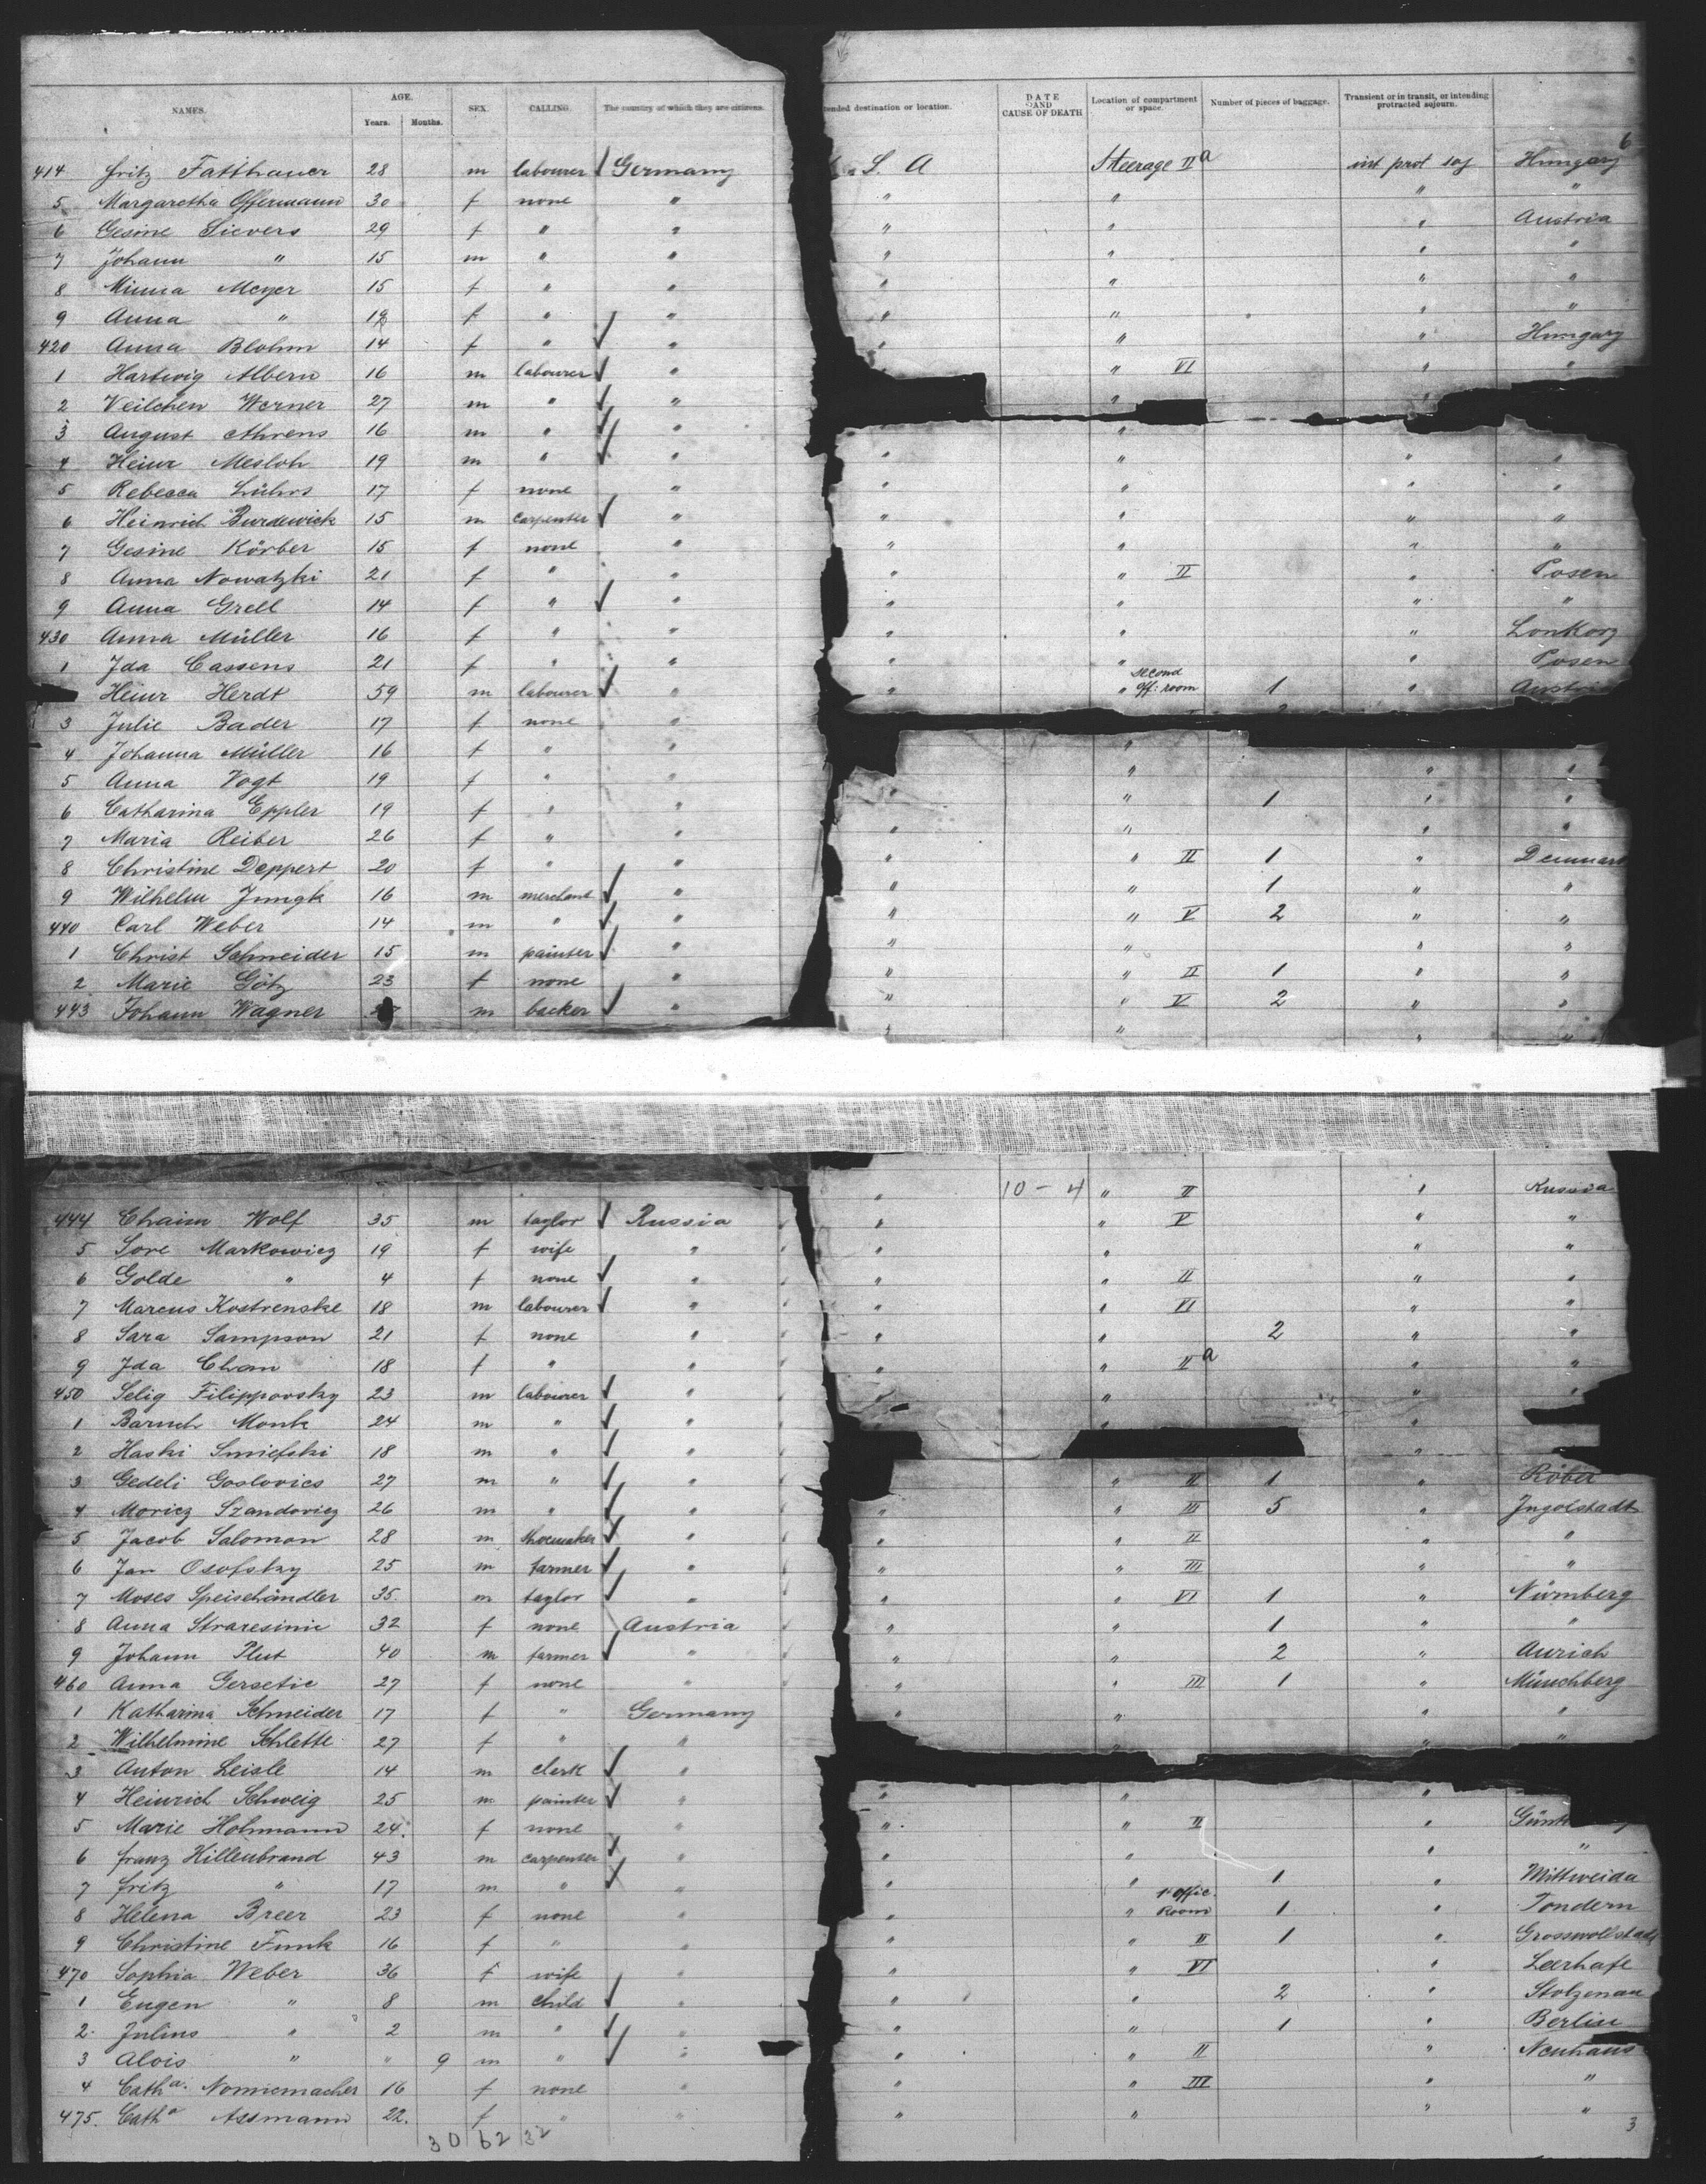 NAMES. AGE. Years. Months. SEX. CALLING. The country of which they are citizens.
414 Fritz Fatthauer 28 m labourer Germany
5 Margaretha Offermann 30 f none "
6 Gesine Sievers 29 f " "
7 Johann " 15 m " "
8 Minna Meyer 15 f " "
9 Anna " f " "
420 Anna Blohm 14 f " "
1 Hartwig Albern 16 m labourer "
2 Veilchen Werner 27 m " "
3 August Ahrens 16 m " "
4 Heinr Mesloh 19 m " "
5 Rebecca Lührs 17 f none "
6 Heinrich Burdewick 15 m carpenter "
7 Gesine Körber 15 f none "
8 Anna Nowatzki 21 f " "
9 Anna Grell 14 f " "
430 Anna Müller 16 f " "
1 Ida Cassens 21 f " "
Heinr Herdt 59 m labourer "
3 Julie Bader 17 f none "
4 Johanna Müller 16 f " "
5 Anna Vogt 19 f " "
6 Catharina Eppler 19 f " "
7 Maria Reiber 26 f " "
8 Christine Deppert 20 f " "
9 Wilhelm Jungk 16 m merchant "
440 Carl Weber 14 m " "
1 Christ Schneider 15 m painter "
2 Marie Götz 23 f none "
443 Johann Wagner m backer "
444 Chaim Wolf 35 m taylor Russia
5 Sore Markowicz 19 f wife "
6 Golde " 4 f none "
7 Marcus Kostrenske 18 m labourer "
8 Sara Sampson 21 f none "
9 Ida Chon 18 f " "
450 Selig Filippovsky 23 m labourer "
1 Baruch Monk 24 m " "
2 Haski Smiefski 18 m " "
3 Gedeli Goslovics 27 m " "
4 Moricz Szandovicz 26 m " "
5 Jacob Salomon 28 m shoemaker "
6 Jan Osofsky 25 m farmer "
7 Moses Speischändler 35 m taylor "
8 Anna Straresinic 32 f none Austria
9 Johann Plut 40 m farmer "
460 Anna Gersetic 27 f none "
1 Katharina Schneider 17 f " Germany
2 Wilhelmine Schlette 27 f " "
3 Anton Leisle 14 m clerk "
4 Heinrich Schweig 25 m painter "
5 Marie Hohmann 24 f none "
6 Franz Hillenbrand 43 m carpenter "
7 Fritz " 17 m " "
8 Helena Breer 23 f none "
9 Christine Funk 16 f " "
470 Sophia Weber 36 f wife "
1 Eugen " 8 m child "
2 Julius " 2 m " "
3 Alois " " 9 m " "
4 Catha. Nonnemacher 16 f none "
475. Catha Assmann 22. f " "
30 62 32
tended destination or location. DATE AND CAUSE OF DEATH Location of compartment or space. Number of pieces of baggage. Transient or in transit, or intending protracted sojourn.
6
S. A Steerage II a int prot soj Hungary
" " " "
" " " Austria
" " " "
" " " "
" " " "
" " " Hungary
" VI " "
"
"
" " " "
" " " "
" " " "
" " " "
" " II " Posen
" " " "
" " " Lonkorz
" " " Posen
" " second off: room 1 " Austri
"
" " "
" " 1 " "
" " " "
" " II 1 " Denmark
" " 1 " "
" " V 2 " "
" " " "
" " II 1 " "
" " V 2 " "
" " " "
" 10-4 " II " Russia
" " V " "
" " " "
" " II " "
" " VI " "
" " 2 " "
" " II a " "
" " " "
" " "
"
" III 1 " Röbel
" " III 5 " Ingolstadt
" " II " "
" " III " "
" " VI 1 " Nürnberg
" " 1 " "
" " 2 " Aurich
" " III 1 " Münchberg
" " " "
" " "
" " "
" " II " Günt
" " " "
" " 1 " Mittweida
" " 1st offic. Room 1 " Tondern
" " II 1 " Grosswollstadt
" " VI " Leerhafe
" " 2 " Stolzenau
" " 1 " Berlin
" " II " Neuhaus
" " III " "
" " " "
3